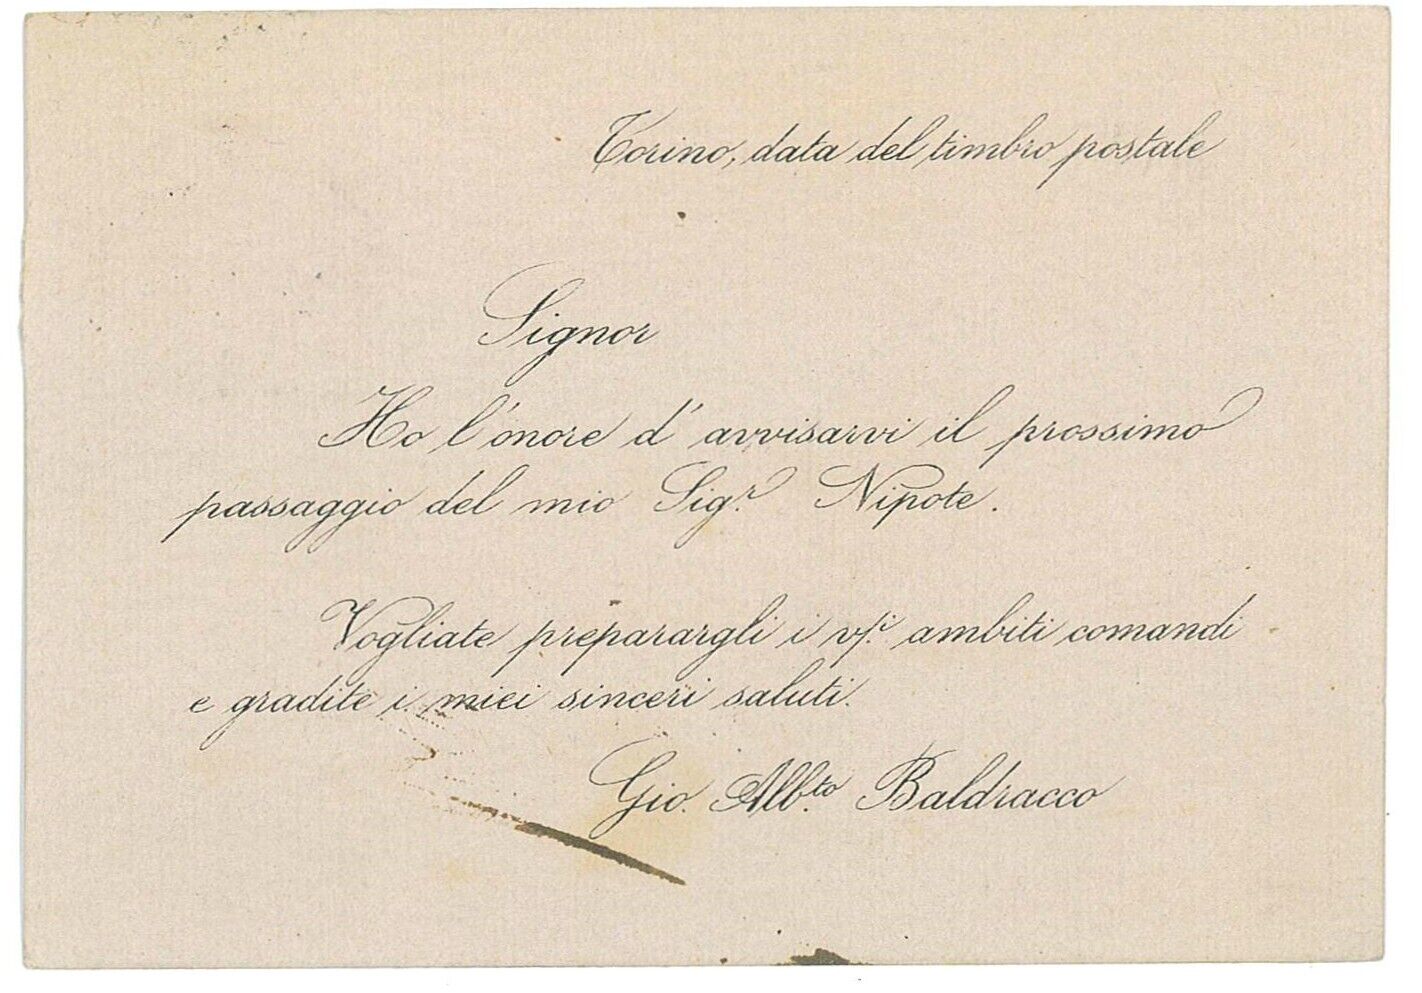 Torino, data del timbro postale
Signor
Ho l'onore d'avvisarvi il prossimo
passaggio del mio Sig.r Nipote.
Vogliate preparargli i v/.i ambiti comandi
e gradite i miei sinceri saluti.
Gio. Alb.to Baldracco